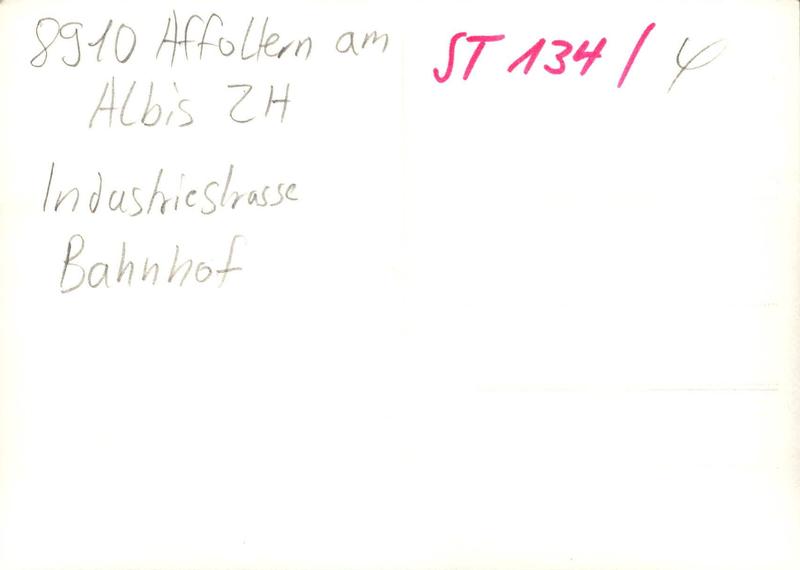 8910 Affoltern am
Albis ZH
Industriestrasse
Bahnhof
ST 134 /